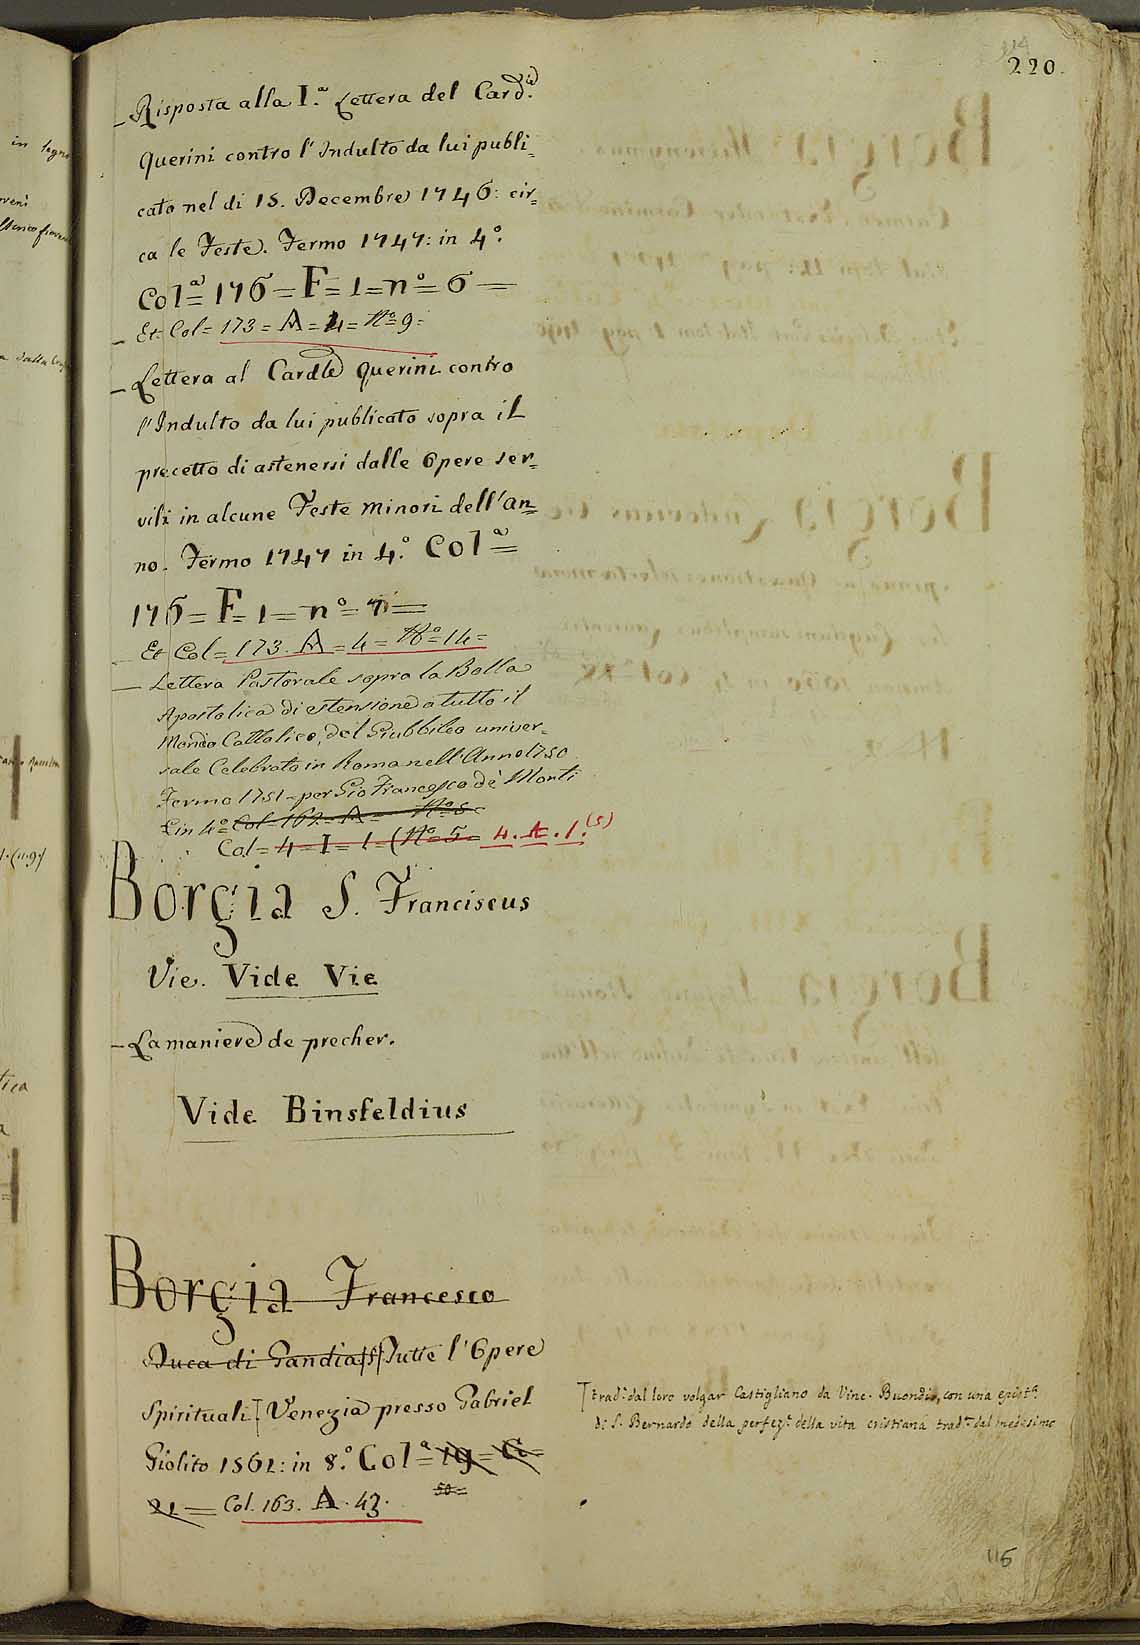 114
220.
– Risposta alla I.ª Lettera del Card.(le)
Querini contro l'Indulto da lui publi=
cato nel di 15. Decembre 1746: cir=
ca le Feste. Fermo 1747: in 4º.
Colª = 176 = F = 1 = nº = 6 —
– Et Col = 173 = A = 4 = Nº 9 =
– Lettera al Cardle Querini contro
l'Indulto da lui publicato sopra il
precetto di astenersi dalle Opere ser=
vili in alcune Feste minori dell'an=
no. Fermo 1747 in 4.º Colª =
176 = F = 1 = nº = 7 =
– Et Col = 173. A = 4 = Nº 14 =
– Lettera Pastorale sopra la Bolla
Apostolica di estensione a tutto il
Mondo Cattolico, del Giubbileo univer=
sale Celebrato in Roma nell'Anno 1750
Fermo 1751 = per Gio Francesco de' Monti
in 4º Col = 162 = A = Nº 5 =
Col = 4 = I = 1 = (Nº 5 = 4. A. 1. (5)
Borgia S. Franciscus
Vie. Vide Vie
– La maniere de precher.
Vide Binsfeldius
Borgia Francesco
Duca di Gandia (S) Tutte l'Opere
Spirituali Venezia presso Gabriel
Giolito 1561: in 8.º Colª = 19 = G =
50 =
21 = Col. 163. A. 43.
trad.e dal loro volgar Castigliano da Vinc. Buondio, con una epist.ª
di S. Bernardo della perfez.e della vita cristiana trad.ª dal medesimo
115